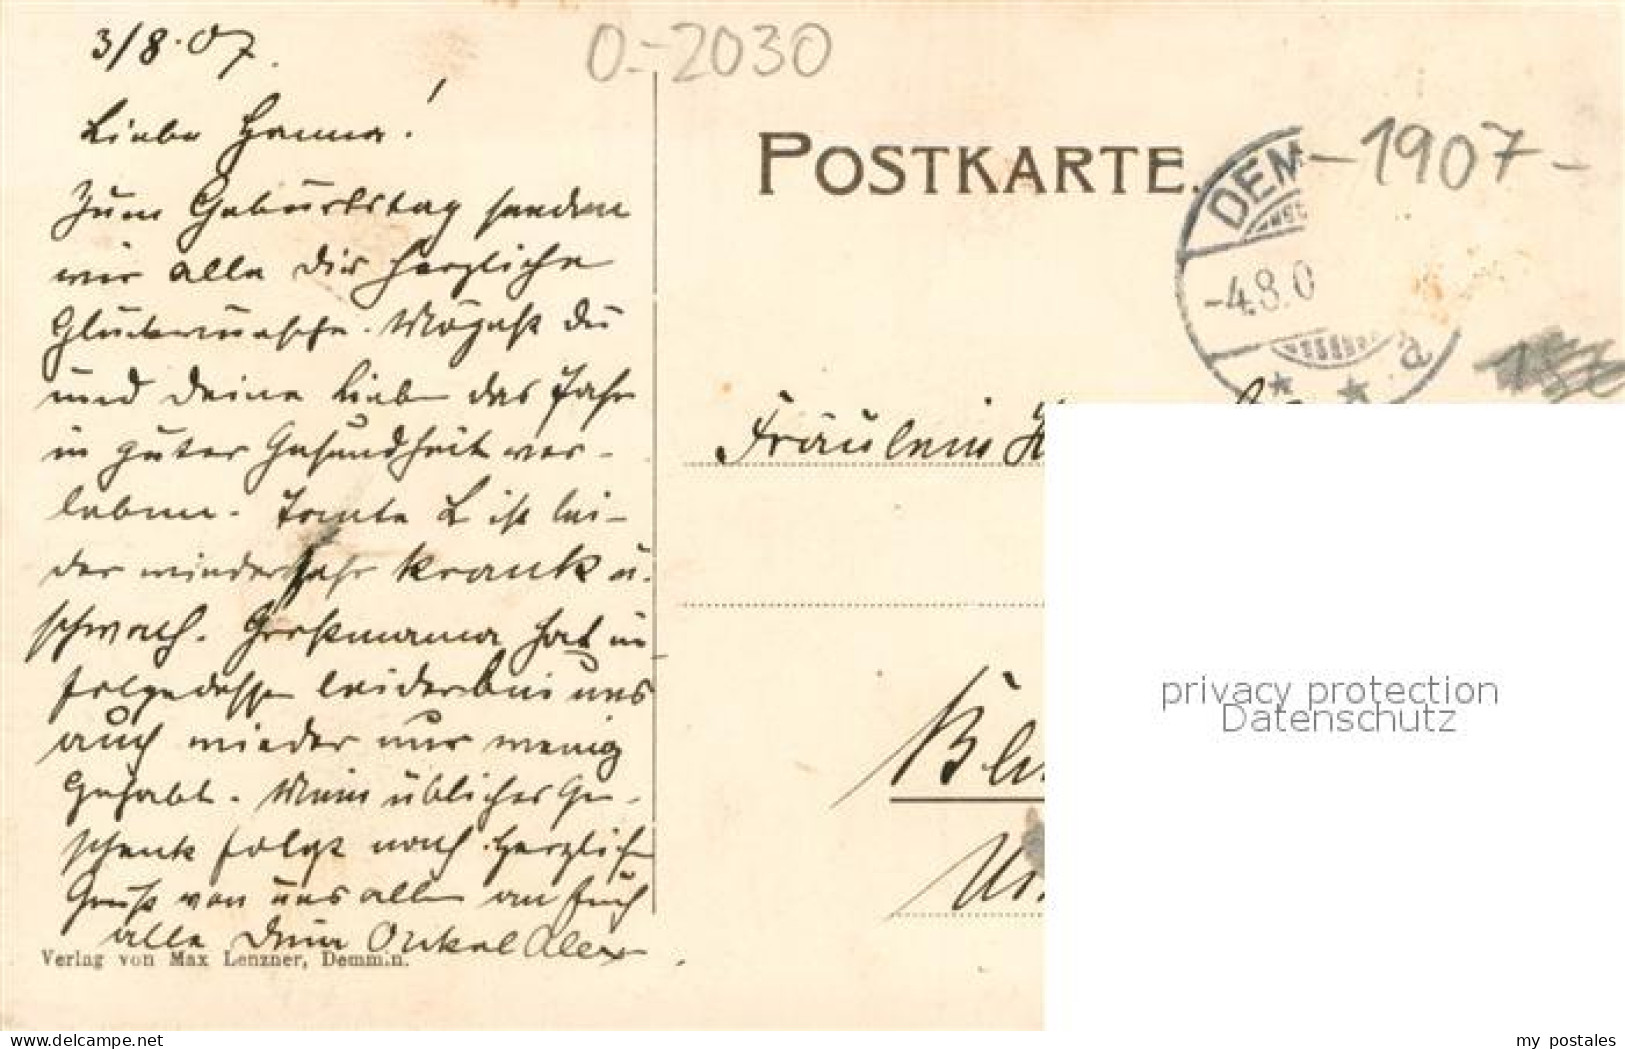 3/8.07.
O-2030
Liebe Hanna!
Zum Geburtstag senden
wir alle Dir herzliche
Glückwünsche. Mögest du
und deine Lieben das Jahr
in guter Gesundheit ver-
leben. Tante L ist lei-
der wieder sehr krank u.
schwach. Großmama hat in
folgedessen leider bei uns
auch wieder nur wenig
Gehabt. Mein üblicher Ge-
schenk folgt noch. Herzlich
Gruß von uns allen an Euch
alle Dein Onkel Alex
Verlag von Max Lenzner, Demmin.
POSTKARTE.
-1907-
DEM
-4.8.0
a
Fräulein H
privacy protection
Datenschutz
www.delcampe.net
my_postales